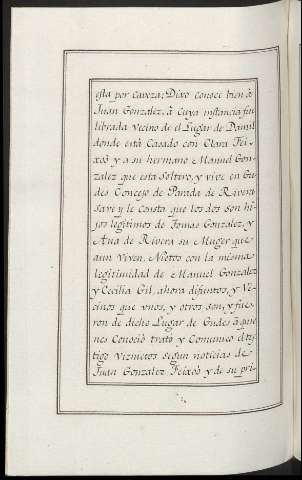 esta por caveza; Dixo conoce bien à
Juan Gonzalez, à cuya instancia fue
librada Vecino de el Lugar de Damil
donde está Casado con Clara Fei-
xoò y a su hermano Manuel Gon-
zalez que esta Soltero, y vive en Gu-
des Concejo de Parada de Riveira
Save y le consta que los dos son hi-
jos legitimos de Tomas Gonzalez, y
Ana de Rivera su Muger que
aun viven. Nietos con la misma
legitimidad de Manuel Gonzalez
y Cecilia Gil, ahora difuntos, y Ve-
cinos que unos, y otros son, y fue-
ron de dicho Lugar de Gudes à quie-
nes Conoció trato y Comunicó el tes-
tigo Viznietos segun noticias de
Juan Gonzalez Feixoò y de su pri-